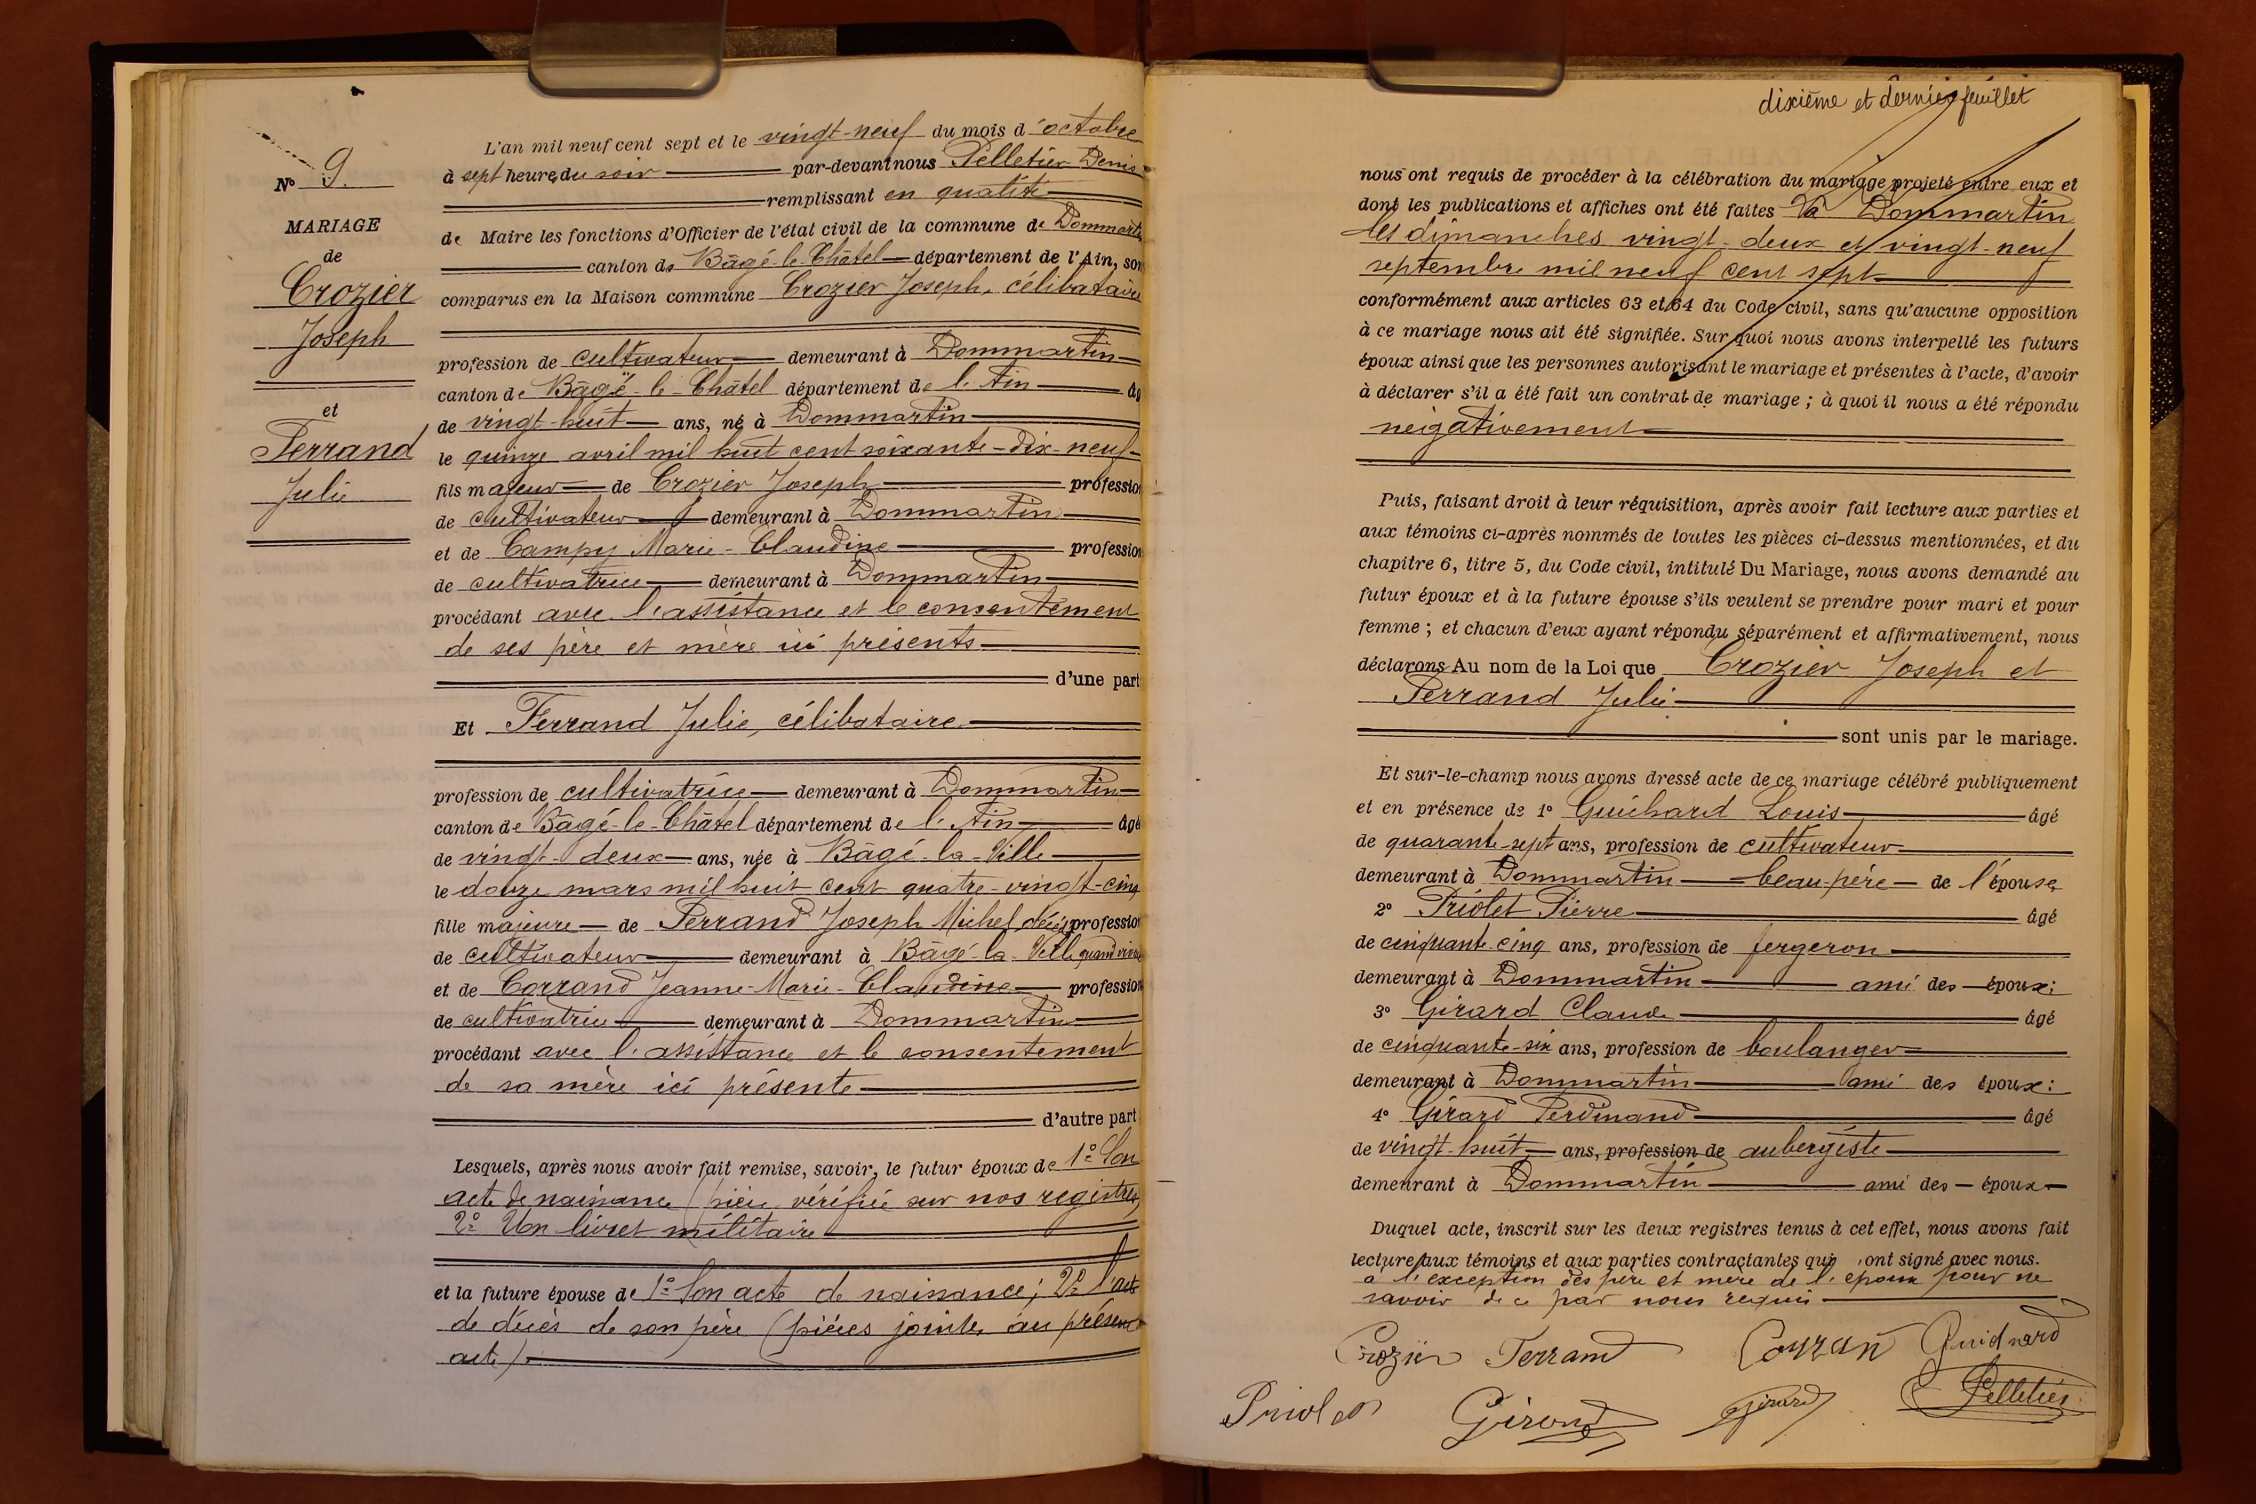 N° 9.
MARIAGE
de
Crozier
Joseph
et
Ferrand
Julie
L'an mil neuf cent sept et le vingt-neuf du mois d'octobre
à sept heures du soir par-devant nous Pelletier Denis
remplissant en qualité
de Maire les fonctions d'Officier de l'état civil de la commune de Dommartin
canton de Bâgé-le-Châtel département de l'Ain, son
comparus en la Maison commune Crozier Joseph, célibataire
profession de cultivateur demeurant à Dommartin
canton de Bâgé-le-Châtel département de l'Ain âg
de vingt-huit ans, né à Dommartin
le quinze avril mil huit cent soixante-dix-neuf
fils majeur de Crozier Joseph profession
de cultivateur demeurant à Dommartin
et de Campy Marie-Claudine profession
de cultivatrice demeurant à Dommartin
procédant avec l'assistance et le consentement
de ses père et mère ici présents
d'une part
Et Ferrand Julie, célibataire
profession de cultivatrice demeurant à Dommartin
canton de Bâgé-le-Châtel département de l'Ain âgé
de vingt-deux ans, née à Bâgé-la-Ville
le douze mars mil huit cent quatre-vingt-cinq
fille majeure de Ferrand Joseph Michel, décédé profession
de cultivateur demeurant à Bâgé-la-Ville quand vivait
et de Corrand Jeanne-Marie-Claudine profession
de cultivatrice demeurant à Dommartin
procédant avec l'assistance et le consentement
de sa mère ici présente
d'autre part
Lesquels, après nous avoir fait remise, savoir, le futur époux de 1° Son
acte de naissance (pièce vérifiée sur nos registres)
2° Un livret militaire
et la future épouse de 1° Son acte de naissance; 2° l'acte
de décès de son père (pièces jointes au présent
acte)
dixième et dernier feuillet
nous ont requis de procéder à la célébration du mariage projeté entre eux et
dont les publications et affiches ont été faites à Dommartin
les dimanches vingt-deux et vingt-neuf
septembre mil neuf cent sept
conformément aux articles 63 et 64 du Code civil, sans qu'aucune opposition
à ce mariage nous ait été signifiée. Sur quoi nous avons interpellé les futurs
époux ainsi que les personnes autorisant le mariage et présentes à l'acte, d'avoir
à déclarer s'il a été fait un contrat de mariage; à quoi il nous a été répondu
négativement
Puis, faisant droit à leur réquisition, après avoir fait lecture aux parties et
aux témoins ci-après nommés de toutes les pièces ci-dessus mentionnées, et du
chapitre 6, titre 5, du Code civil, intitulé Du Mariage, nous avons demandé au
futur époux et à la future épouse s'ils veulent se prendre pour mari et pour
femme; et chacun d'eux ayant répondu séparément et affirmativement, nous
déclarons Au nom de la Loi que Crozier Joseph et
Ferrand Julie
sont unis par le mariage.
Et sur-le-champ nous avons dressé acte de ce mariage célébré publiquement
et en présence de 1° Guichard Louis âgé
de quarante-sept ans, profession de cultivateur
demeurant à Dommartin beau-père de l'épouse
2° Priolet Pierre âgé
de cinquante-cinq ans, profession de forgeron
demeurant à Dommartin ami des époux;
3° Girard Claude âgé
de cinquante-six ans, profession de boulanger
demeurant à Dommartin ami des époux:
4° Girard Ferdinand âgé
de vingt-huit ans, profession de aubergiste
demeurant à Dommartin ami des époux
Duquel acte, inscrit sur les deux registres tenus à cet effet, nous avons fait
lecture aux témoins et aux parties contractantes qui ont signé avec nous.
à l'exception des père et mère de l'époux pour ne
savoir de ce par nous requis
Crozier Ferrand Corran Guichard
Priolet Girard Girard Pelletier